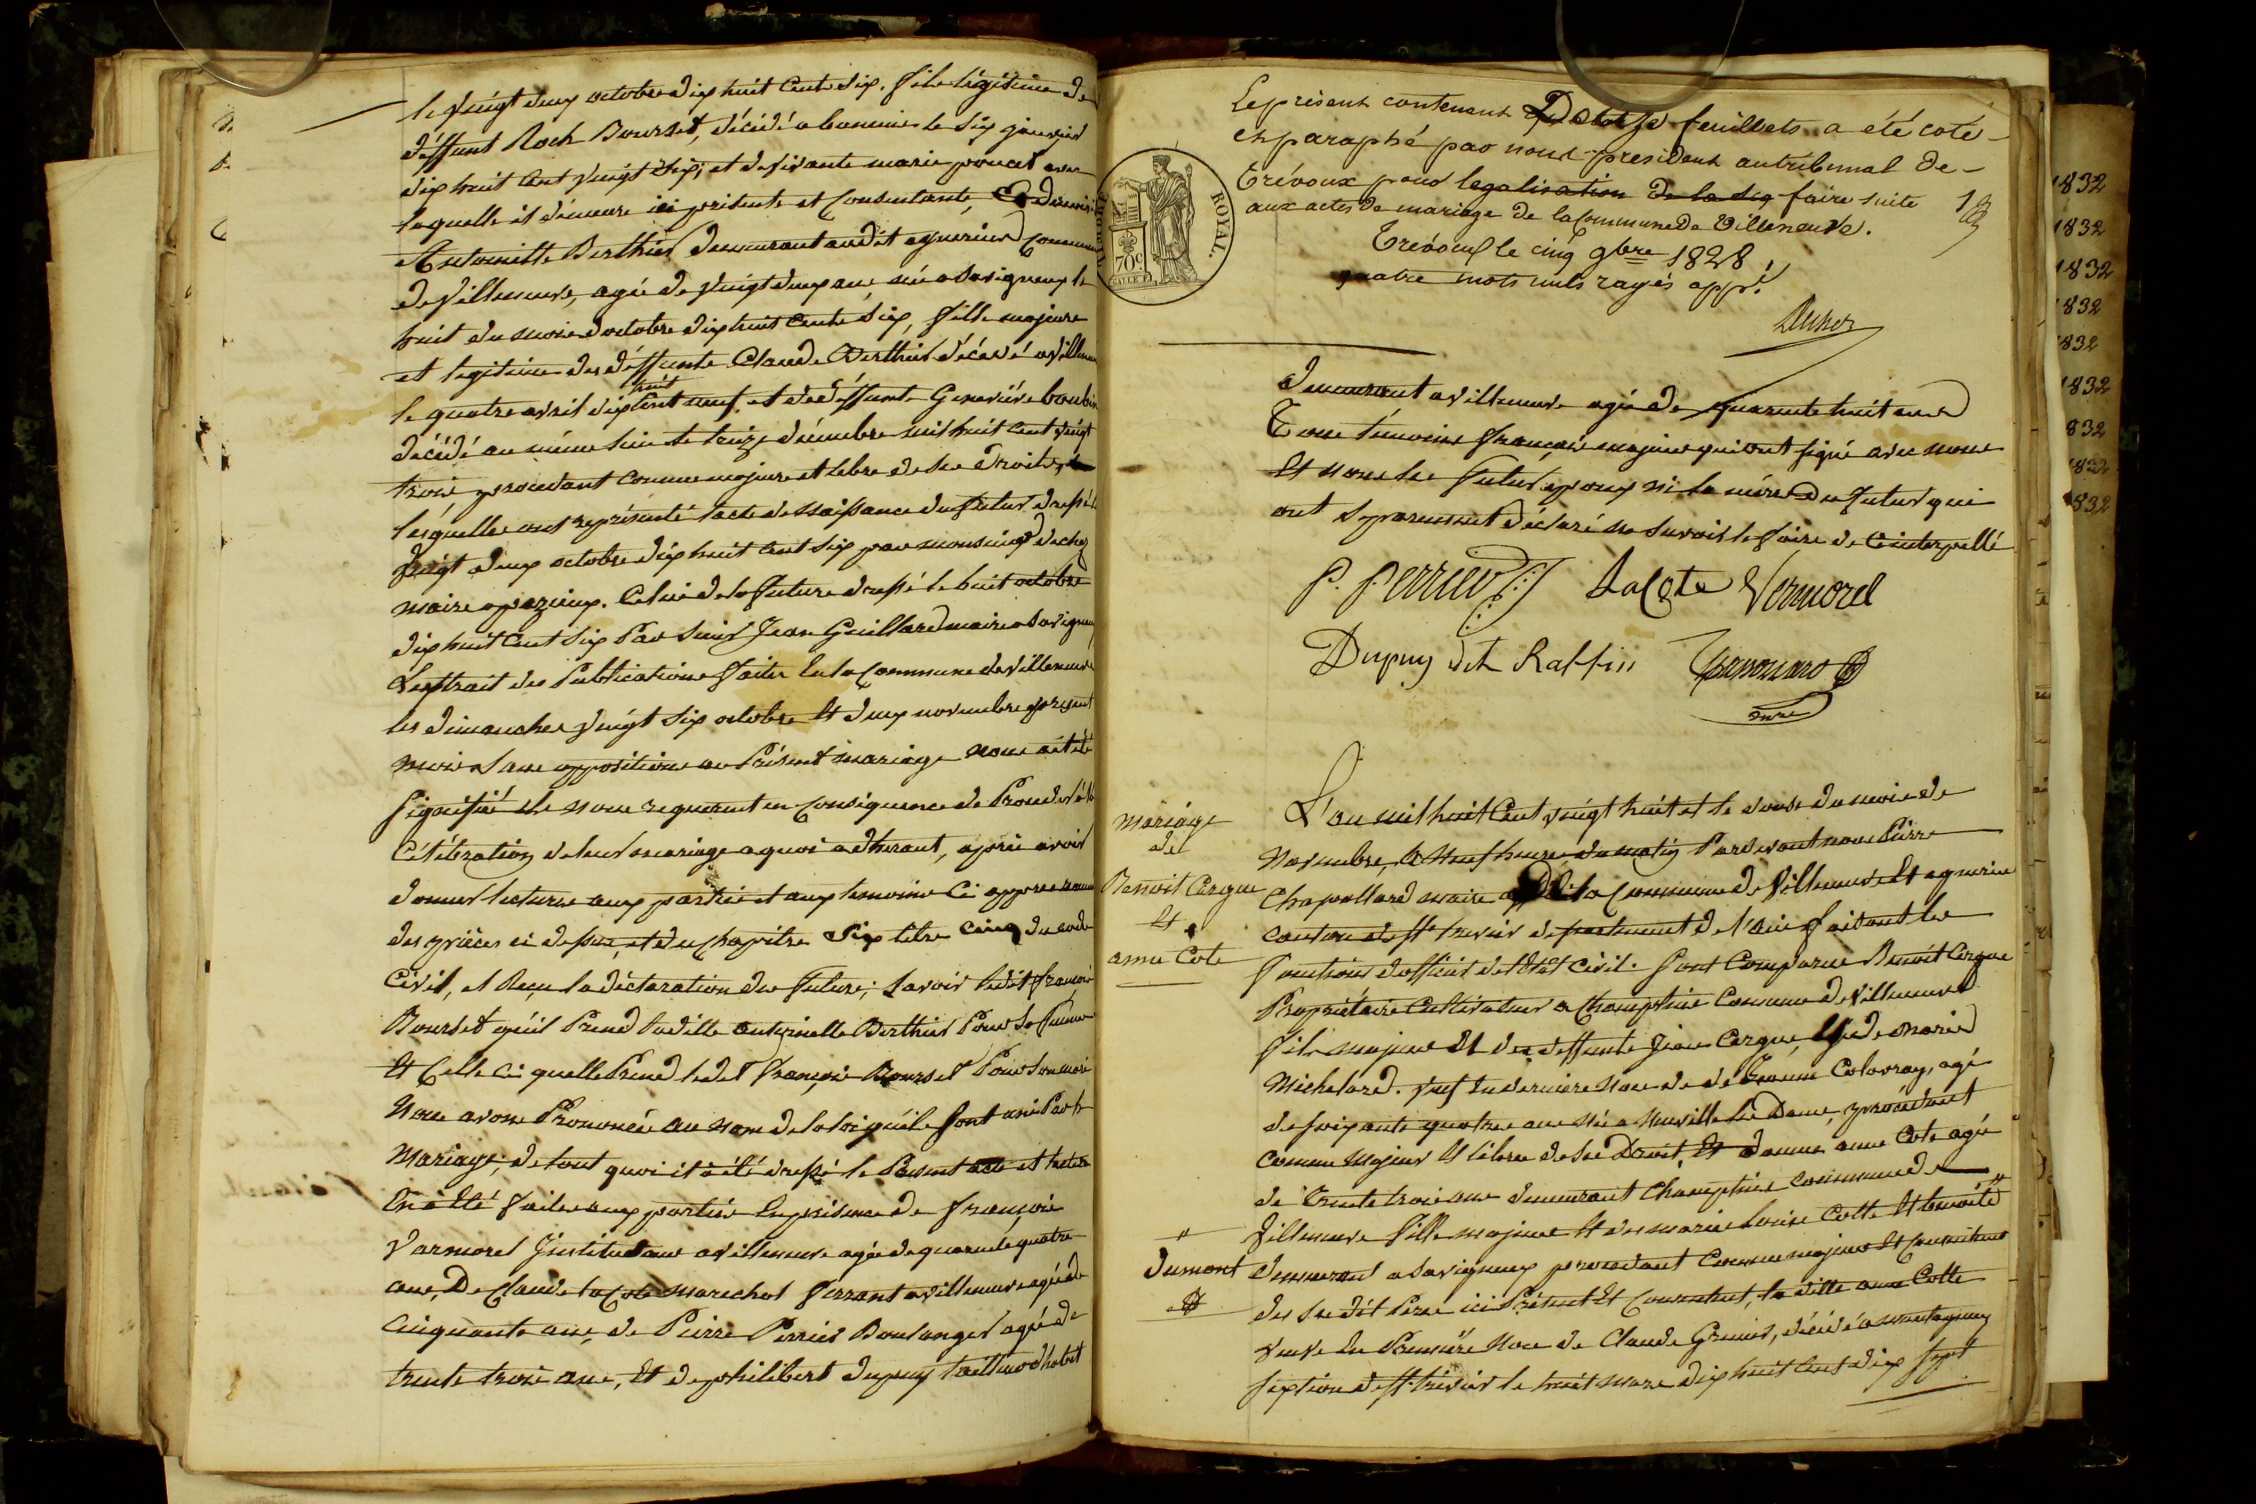 le vingt deux octobre dix huit cents six. fils légitime de
deffunt Roch Bourset, décédé a le six janvier
dix huit cent vingt six; et de vivante marie poncet avec
laquelle il démeure ici présente et Consentante, Et
Antoinette Berthier demeurant audit agnerins Commune
de Villeneuve, agée de vingt deux ans née a Savigneux le
huit du mois doctobre dix huit cents six, fille majeure
et legitime des deffunts Claude Berthier décédé a Villeneuve
le quatre avril dix huit cent neuf, et de deffunte Geneviève
décédé au même lieu le treize décembre mil huit cent vingt
trois, procedant comme majeure et libre de ses droits,
lesquelles ont représenté lacte de naissance du futur dressé le
vingt deux octobre dix huit cent six par monsieur
maire a pazieux. Celui de la future dressé le huit octobre
dix huit cent six Par Sieur Jean Guillard maire a Savigneux
Lextrait des Publications faites en la Commune de Villeneuve
les dimanches vingt six octobre Et deux novembre présent
mois Sans oppositions au Présent mariage nous a été
signifié Ils nous requerent en Conséquence de Proceder à la
Célébration de leur mariage a quoi adhérant, après avoir
donner lecture aux parties et aux temoins Ci après nommés
des pièces ci dessus, et du chapitre Six titre Cinq du code
Civil, et Reçu la déclaration des futurs; Savoir ledit françois
Bourset qu'il Prend ladite antoinette Berthier Pour Sa femme
Et Celle ci quelle Prend ledit françois Bourset Pour Son mari
Nous avons Prononcé au nom de la loi qu'ils sont unis Par le
Mariage, de tout quoi il à été dressé le Présent acte et lecture
En à été faite aux parties En présence de françois
Vermorel Instituteur a villeneuve agée de quarente quatre
ans, De Claude lacote marechal ferrant a villeneuve agé de
cinquante ans, de Pierre Perrier Boulanger agé de
trente trois ans, Et de philibert dupuy tailleur d'habit
Le présent contenant Douze feuillets a été coté
et paraphé par nous president au tribunal de
Trévoux pour legalisation de la sig faire suite
aux actes de mariage de la Commune de Villeneuve.
Trévoux le cinq 9bre 1828
quatre mots nuls rayés appé.
ROYAL.
70c
demeurant a villeneuve agée de quarente huit ans
Tous témoins français majeurs qui ont signé avec nous
Et nous les futurs époux ni la mère du futur qui
ont Séparement déclaré ne Savoir le faire de Ce interpellé
P. Perrier LaCote Vermorel
Dupuy dit Raffin
L'an mil huit Cent vingt huit et le douze du mois de
Novembre, à Neuf heures du matin Pardevant nous Pierre
Chapellard maire de la Commune de Villeneuve Et agnerins
canton de St trivier département de l'ain faisant les
fonctions dofficier de l'Etat Civil. Sont Comparus Benoit Cergue
Propriétaire Cultivateur a Champtier Commune de Villeneuve
fils majeur Et des deffunts Jean Cergue, Et de Marie
Michelard. veuf En derniere Noce de Colovray, agé
de soixante quatre ans Né a Neuville les Dames, procedant
comme majeur Et libre de ses Droit, Et dame anne Cote agée
de Trente trois ans demeurant Champtier commune de
Villeneuve fille majeure Et de marie louise Cotte Et benoite
demeurant a Savigneux procedant Comme majeure Et Consentement
des Sus dit Père ici Présent Et Consentent, la dite anne Cotte
veuve En Première Noce de Claude Grenier, décédé a montagneux
section de St trivier le huit mars dix huit cent dix sept
mariage
de
Benoit Cergue
Et
anne Cote
dumont
1832
1832
1832
1832
1832
1832
832
1832
1832